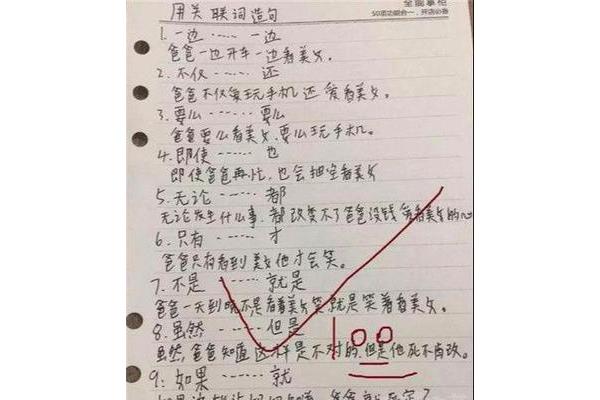 全能掌柜
50项功能合一,开店必备
用关联词造句
1.一边……一边
爸爸一边开车一边看美女。
2.不仅……还
爸爸不仅爱玩手机还爱看美女。
3.要么……要么
爸爸要么看美女,要么玩手机。
4.即使……也
即使爸爸再忙,也会抽空看美女
5.无论……都
无论发生什么事,都改变不了爸爸没钱爱看美女的心
6.只有……才
爸爸只有看到美女他才会笑。
7.不是……就是
爸爸一天到晚不是看着美女笑就是笑着看美女。
8.虽然……但是
虽然,爸爸知道这样是不对的,但是他死不肯改。
9.如果……就
100